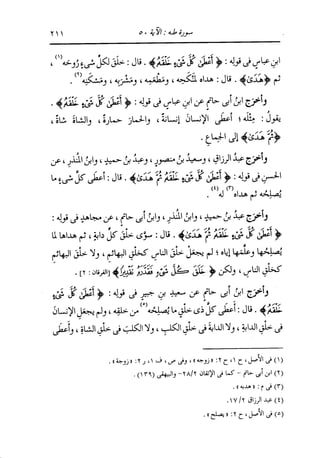 سورة طه : الآية ٥٠
٢١١
ابن عباس فى قوله : ﴿ أَعْطَىٰ كُلَّ شَىْءٍ خَلْقَهُ ﴾ . قال : خلَق لكلِّ شىءٍ زوجَه(١) ،
ثم ﴿ هَدَىٰ ﴾ . قال : هداه لمَنْكَحِه ، ومَطعَمِه ، ومَشربِه ، ومَسْكنِه(٢) .
وأخرَج ابنُ أبى حاتمٍ عن ابنِ عباسٍ فى قوله : ﴿ أَعْطَىٰ كُلَّ شَىْءٍ خَلْقَهُ ﴾ .
يقولُ : مِثلَه ؛ أعطى الإنسانَ إنسانةً ، والحمارَ حمارةً ، والشاةَ شاةً ،
﴿ ثُمَّ هَدَىٰ ﴾ إلى الجِماعِ .
وأخرَج عبدُ الرزاقِ ، وسعيدُ بنُ منصورٍ ، وعبدُ بنُ حميدٍ ، وابنُ المنذرِ ، عن
الحسنِ فى قوله : ﴿ أَعْطَىٰ كُلَّ شَىْءٍ خَلْقَهُ ثُمَّ هَدَىٰ ﴾ . قال : أعطى كلَّ شىءٍ ما
يُصلِحُه ثم هداه(٣) له(٤) .
وأخرَج عبدُ بنُ حميدٍ ، وابنُ المنذرِ ، وابنُ أبى حاتمٍ ، عن مجاهدٍ فى قوله :
﴿ أَعْطَىٰ كُلَّ شَىْءٍ خَلْقَهُ ثُمَّ هَدَىٰ ﴾ . قال : سوَّى خلْقَ كلِّ دابةٍ ، ثم هداها لما
يُصلِحُها وعلَّمها إياه ؛ لم يجعلْ خلْقَ الناسِ كخلْقِ البهائمِ ، ولا خلْقَ البهائمِ
كخلْقِ الناسِ ، ولكن ﴿ خَلَقَ كُلَّ شَىْءٍ فَقَدَّرَهُ تَقْدِيرًا ﴾ [الفرقان : ٢] .
وأخرَج ابنُ أبى حاتمٍ عن سعيدِ بنِ جبيرٍ فى قوله : ﴿ أَعْطَىٰ كُلَّ شَىْءٍ
خَلْقَهُ ﴾ . قال : أعطى كلَّ ذى خلْقٍ ما يُصلِحُه(٥) من خلْقِه ، ولم يجعلِ الإنسانَ
فى خلْقِ الدابةِ ، ولا الدابةَ فى خلْقِ الكلبِ ، ولا الكلبَ فى خلْقِ الشاةِ ، وأعطى
(٢) ابن أبى حاتم - كما فى الإتقان ٢/ ٢٨ - والبيهقى (١٣٩) .
(٣) فى م : « هديه » .
(٤) عبد الرزاق ٢/ ١٧ .
(٥) فى الأصل ، ح ٢ : « يصلح » .